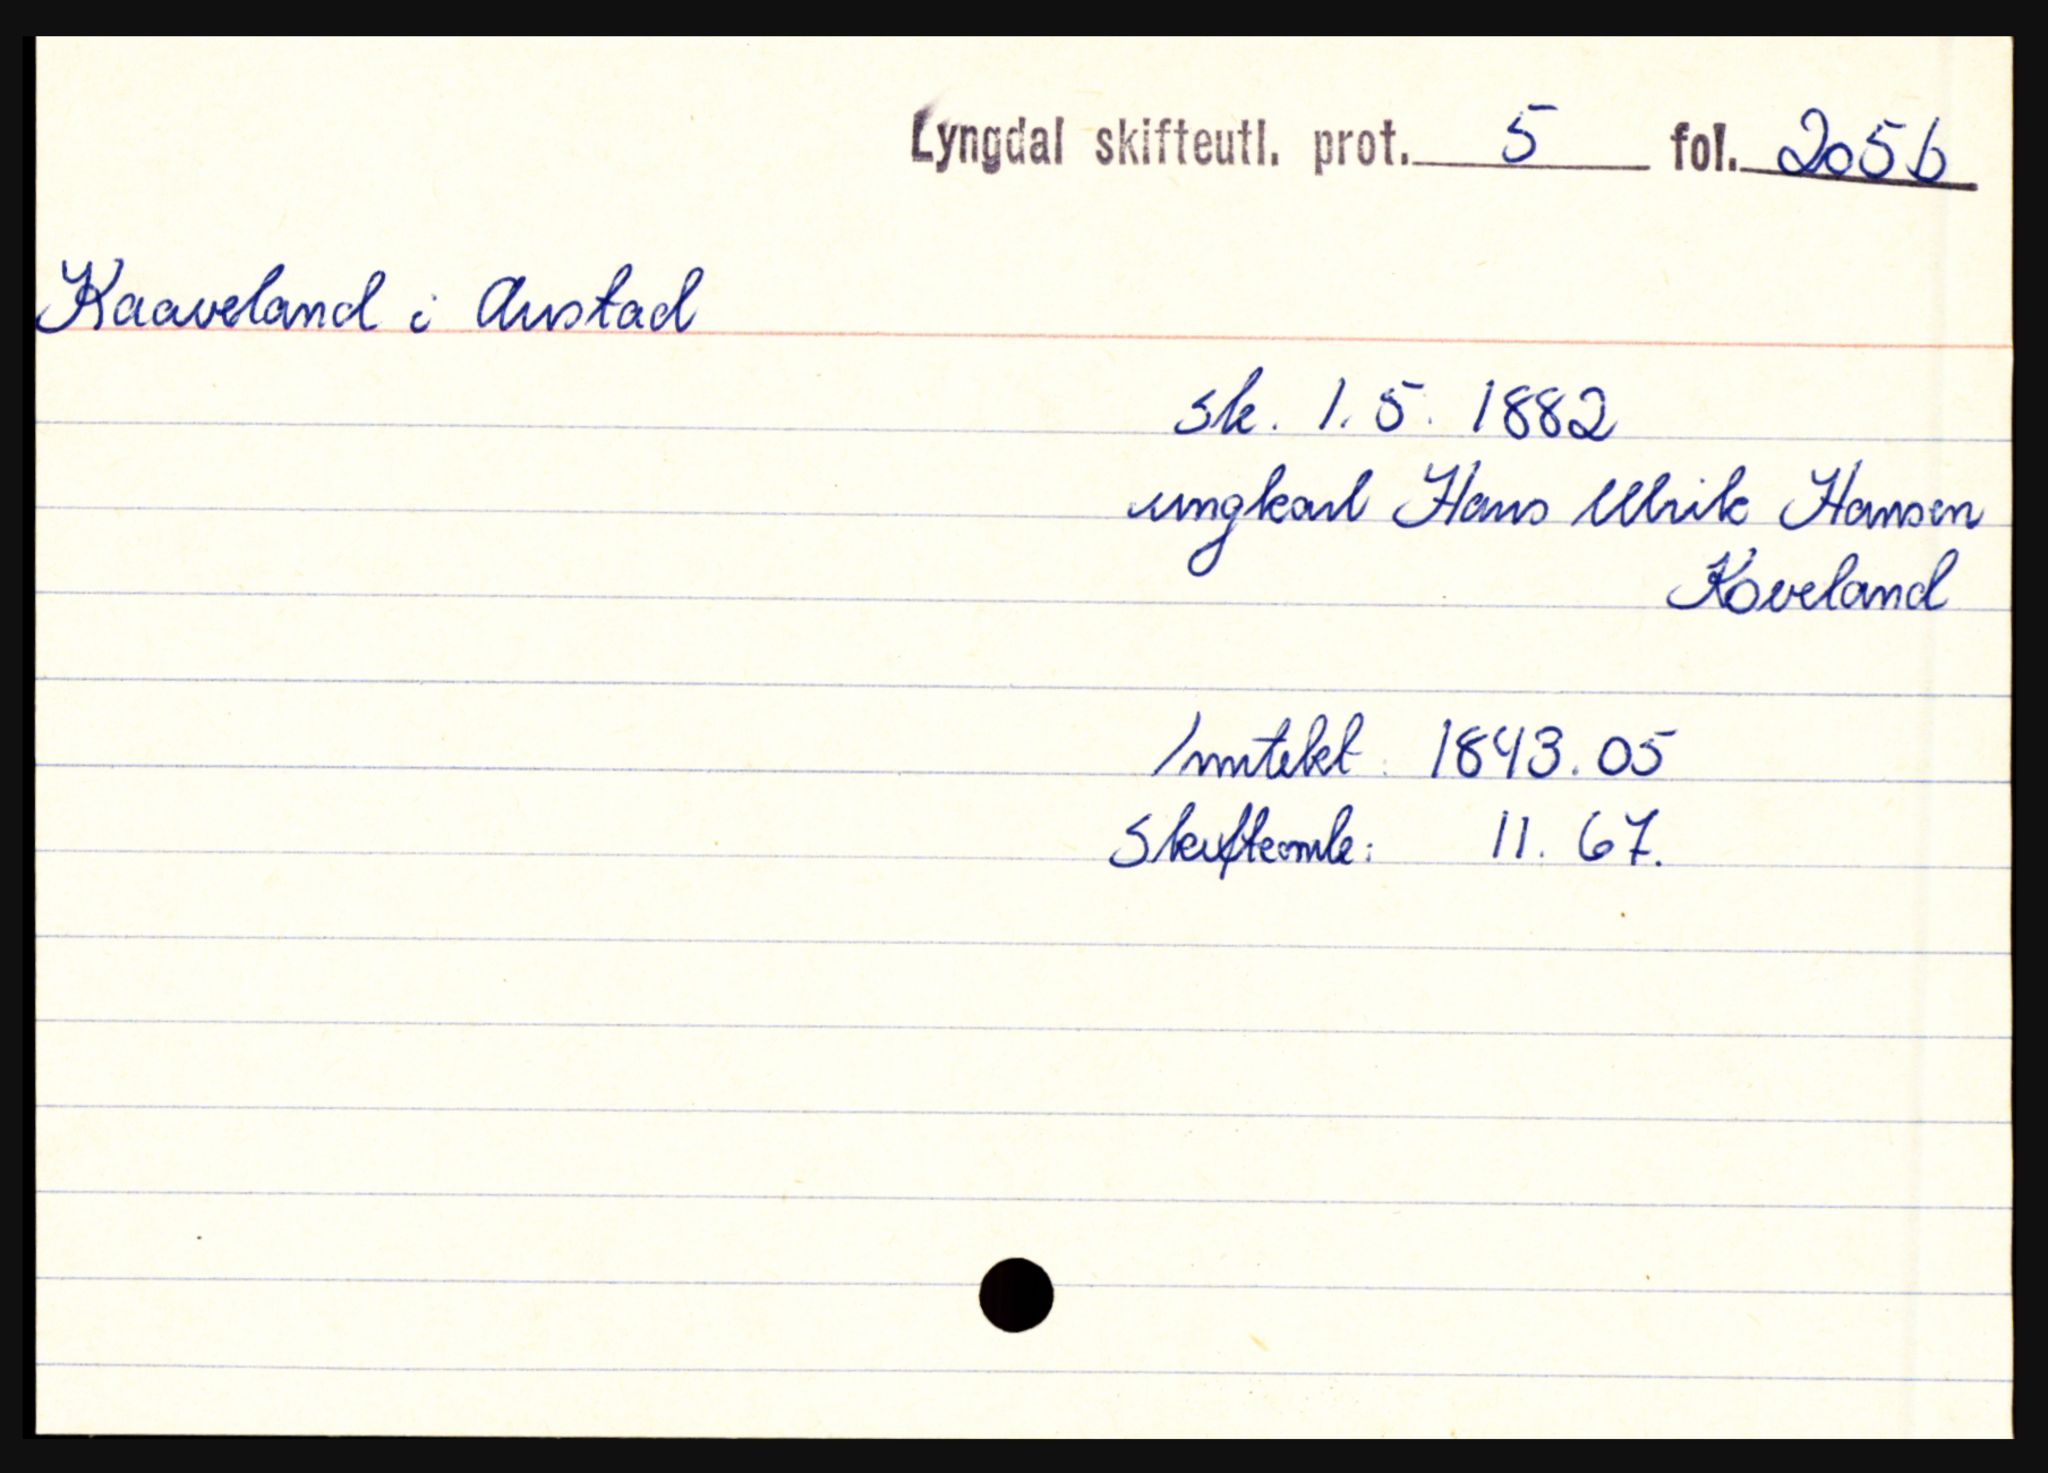 Lyngdal skifteutl. prot. 5 fol. 205b
Kaaveland i Austad
sk. 1.5. 1882
ungkarl Hans Ulrik Hansen
Koveland
Inntekt: 1843.05
Skifteomk: 11.67.